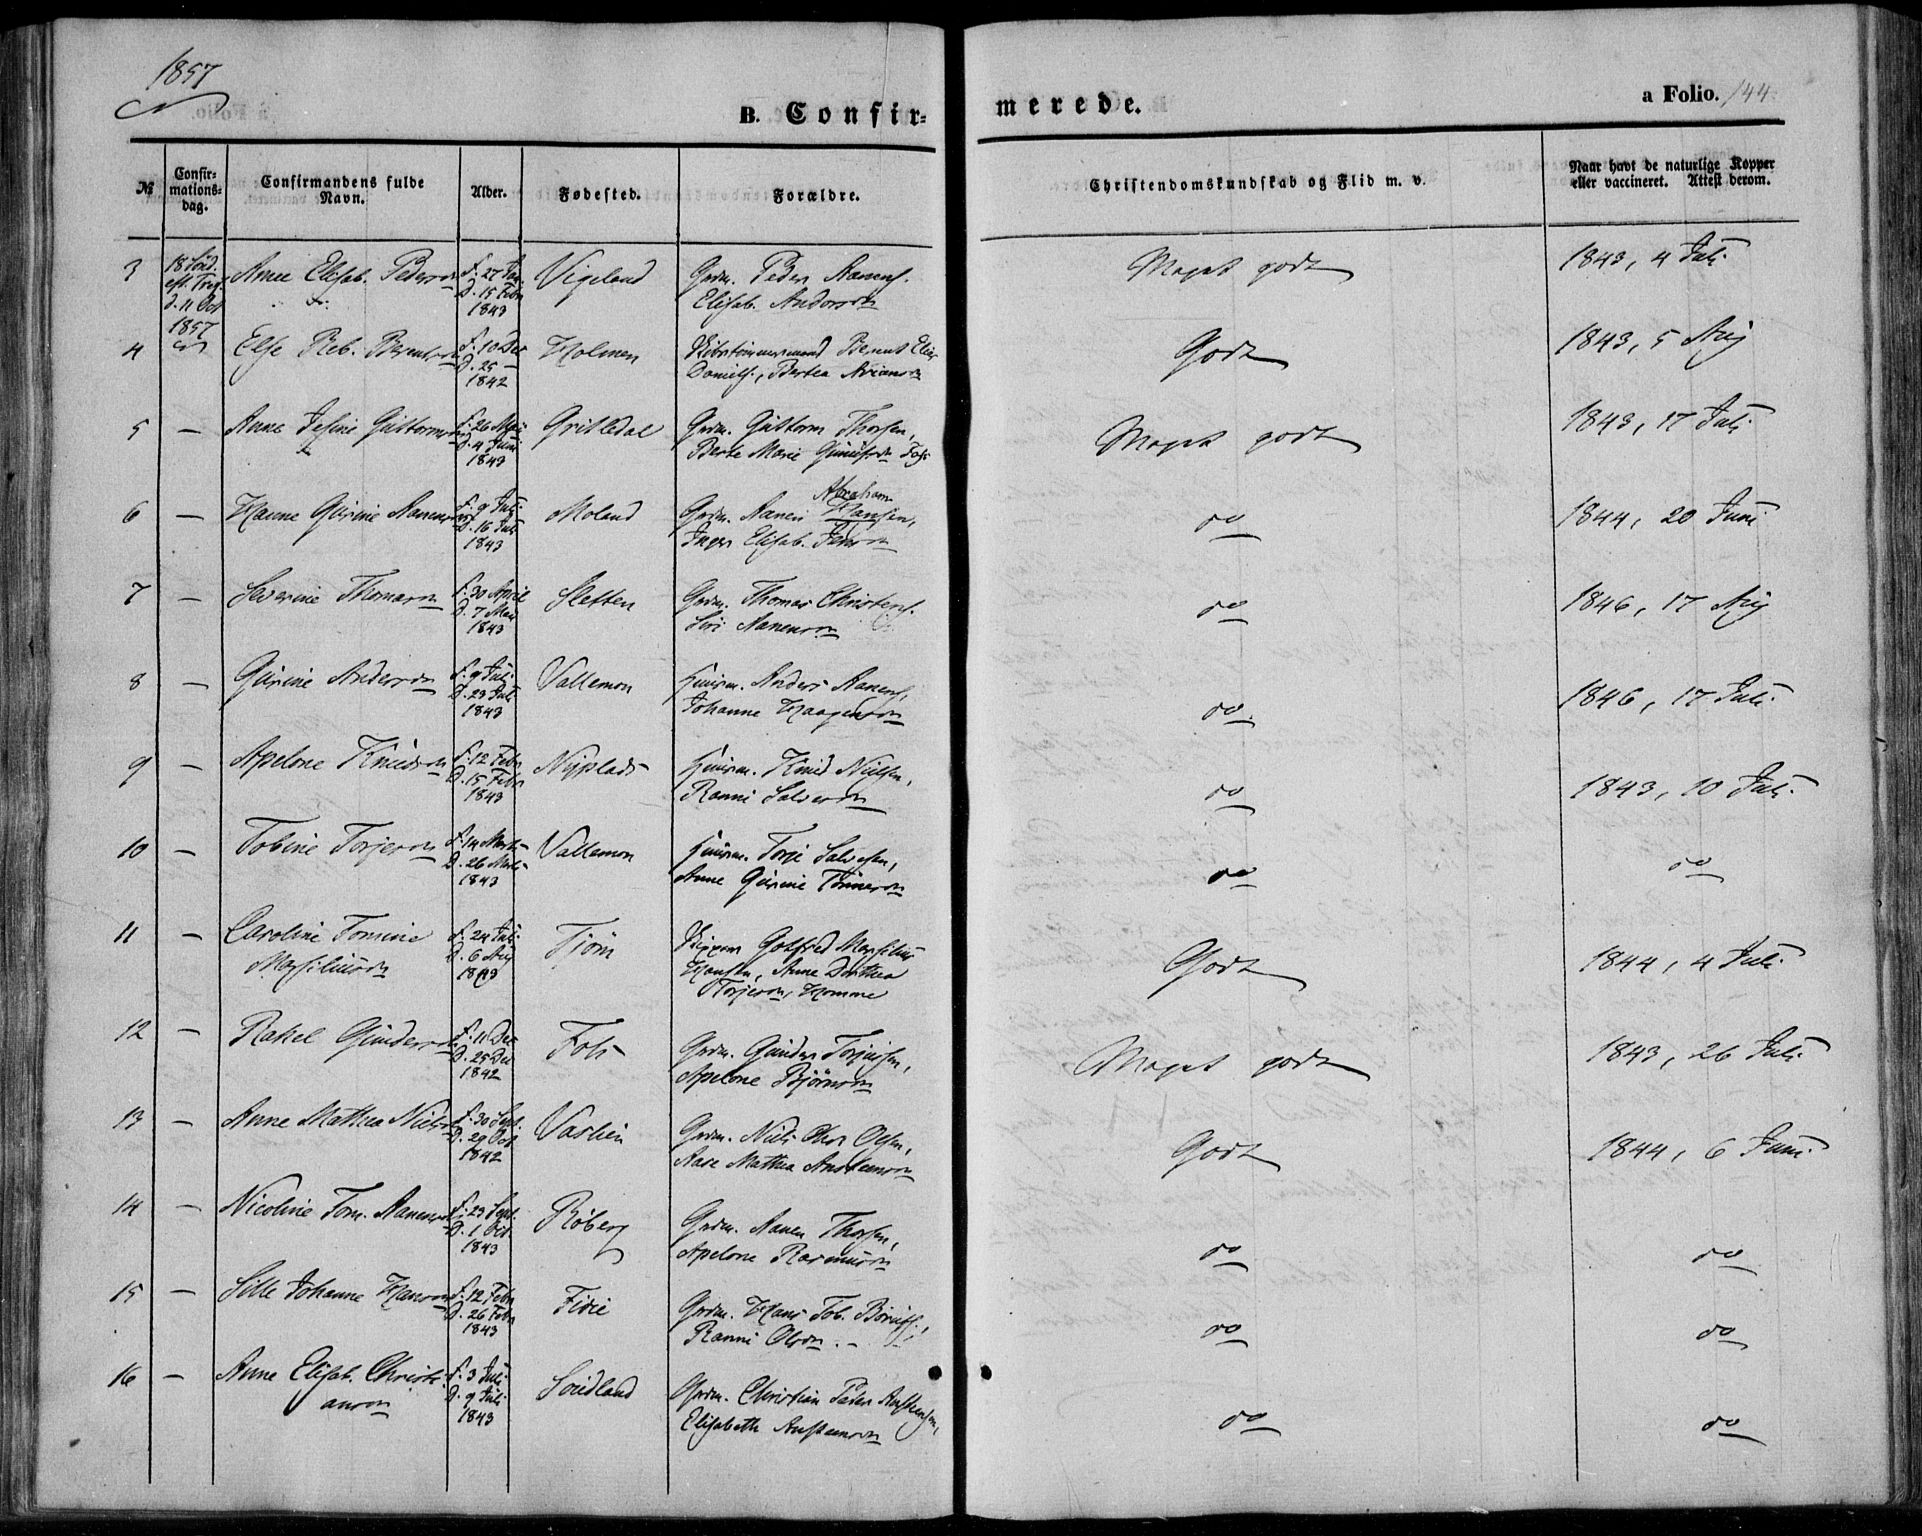 1857
B. Confir- merede.
a Folio. 144.
№
Confir-
mations-
dag.
Confirmandens fulde
Navn.
Alder.
Fødested.
Forældre.
Christendomskundskab og Flid m. v.
Naar havt de naturlige Kopper
eller vaccineret. Attest derom.
3 18 Sönd. eft. Tref. d. 11 Oct 1857 Anne Elisab. Pedersdn F. 27 Jan D. 15 Febr 1843 Vigeland Grdm. Peder Aanens.
Elisab. Andersdn Meget godt 1843, 4 Juli
4 Else Reb. Berentsdn F. 10 Dec D. 25 — 1842 Holmen Skibstömmermand Berent Elias
Daniels., Bertea Godt 1843, 5 Aug
5 — Anne Guttormsdn F. 26 Mai D. 4 Juni 1843 Gritledal Grdm. Guttorm Thorsen,
Berte Marie Meget godt 1843, 17 Juli
6 — Hanne Gurine Aanensdn F. 9 Juli D. 16 Juli 1843 Moland Grdm. Aanen Abraham Hansen,
Inger Elisab. do 1844, 20 Juni
7 — Severine Thomasdn F. 30 April D. 7 Mai 1843 Sletten Grdm. Thomas Christens.
Siri Aanensdn do 1846, 17 Aug
8 — Gurine Andersdn F. 9 Juli D. 23 Juli 1843 Vallemon Huusm. Anders Aanens.,
Johanne Haagensdn do. 1846, 17 Juli
9 — Apelone Knudsdn F. 12 Febr D. 15 Febr 1843 Nyplads Huusm. Knud Nielsen,
Ranni Salvesdn do 1843, 10 Juli
10 — Tobine Torjesdn F. 14 Marts D. 26 Marts 1843 Vallemon Huusm. Torje Salvesen,
Anne Gurine Tönnesdn do do
11 — Caroline Tomine
Marsiliusdn F. 24 Juli D. 6 Aug 1843 Tjöm Skipper Gotfred Marsilius
Hansen, Anne Dorthea
Torjesdn, Homme Godt 1844, 4 Juli
12 — Rakel Gundersdn F. 11 Dec D. 25 Dec 1842 Foss Grdm. Gunder Torjusen,
Apelone Björnsdn Meget godt 1843, 26 Juli
13 — Anne Mathea Nielsdn F. 30 Sept. D. 29 Oct 1842 Vaslien Grdm. Niels Olsen,
Aase Mathea Anstensdn Godt 1844, 6 Juni
14 — Nicoline Tom. Aanensdn F. 23 Sept. D. 1 Oct. 1843 Röberg Grdm. Aanen Thorsen,
Apelone Rasmusdn do do
15 — Sille Johanne Hansdn F. 12 Febr D. 26 Febr 1843 Fidie Grdm. Hans Tob.
Ranni Olsdn do do
16 — Anne Elisab. Christi-
ansdn F. 3 Juli D. 9 Juli 1843 Sordland Grdm. Christian Peder Anstensen,
Elisabeth Anstensdn do do